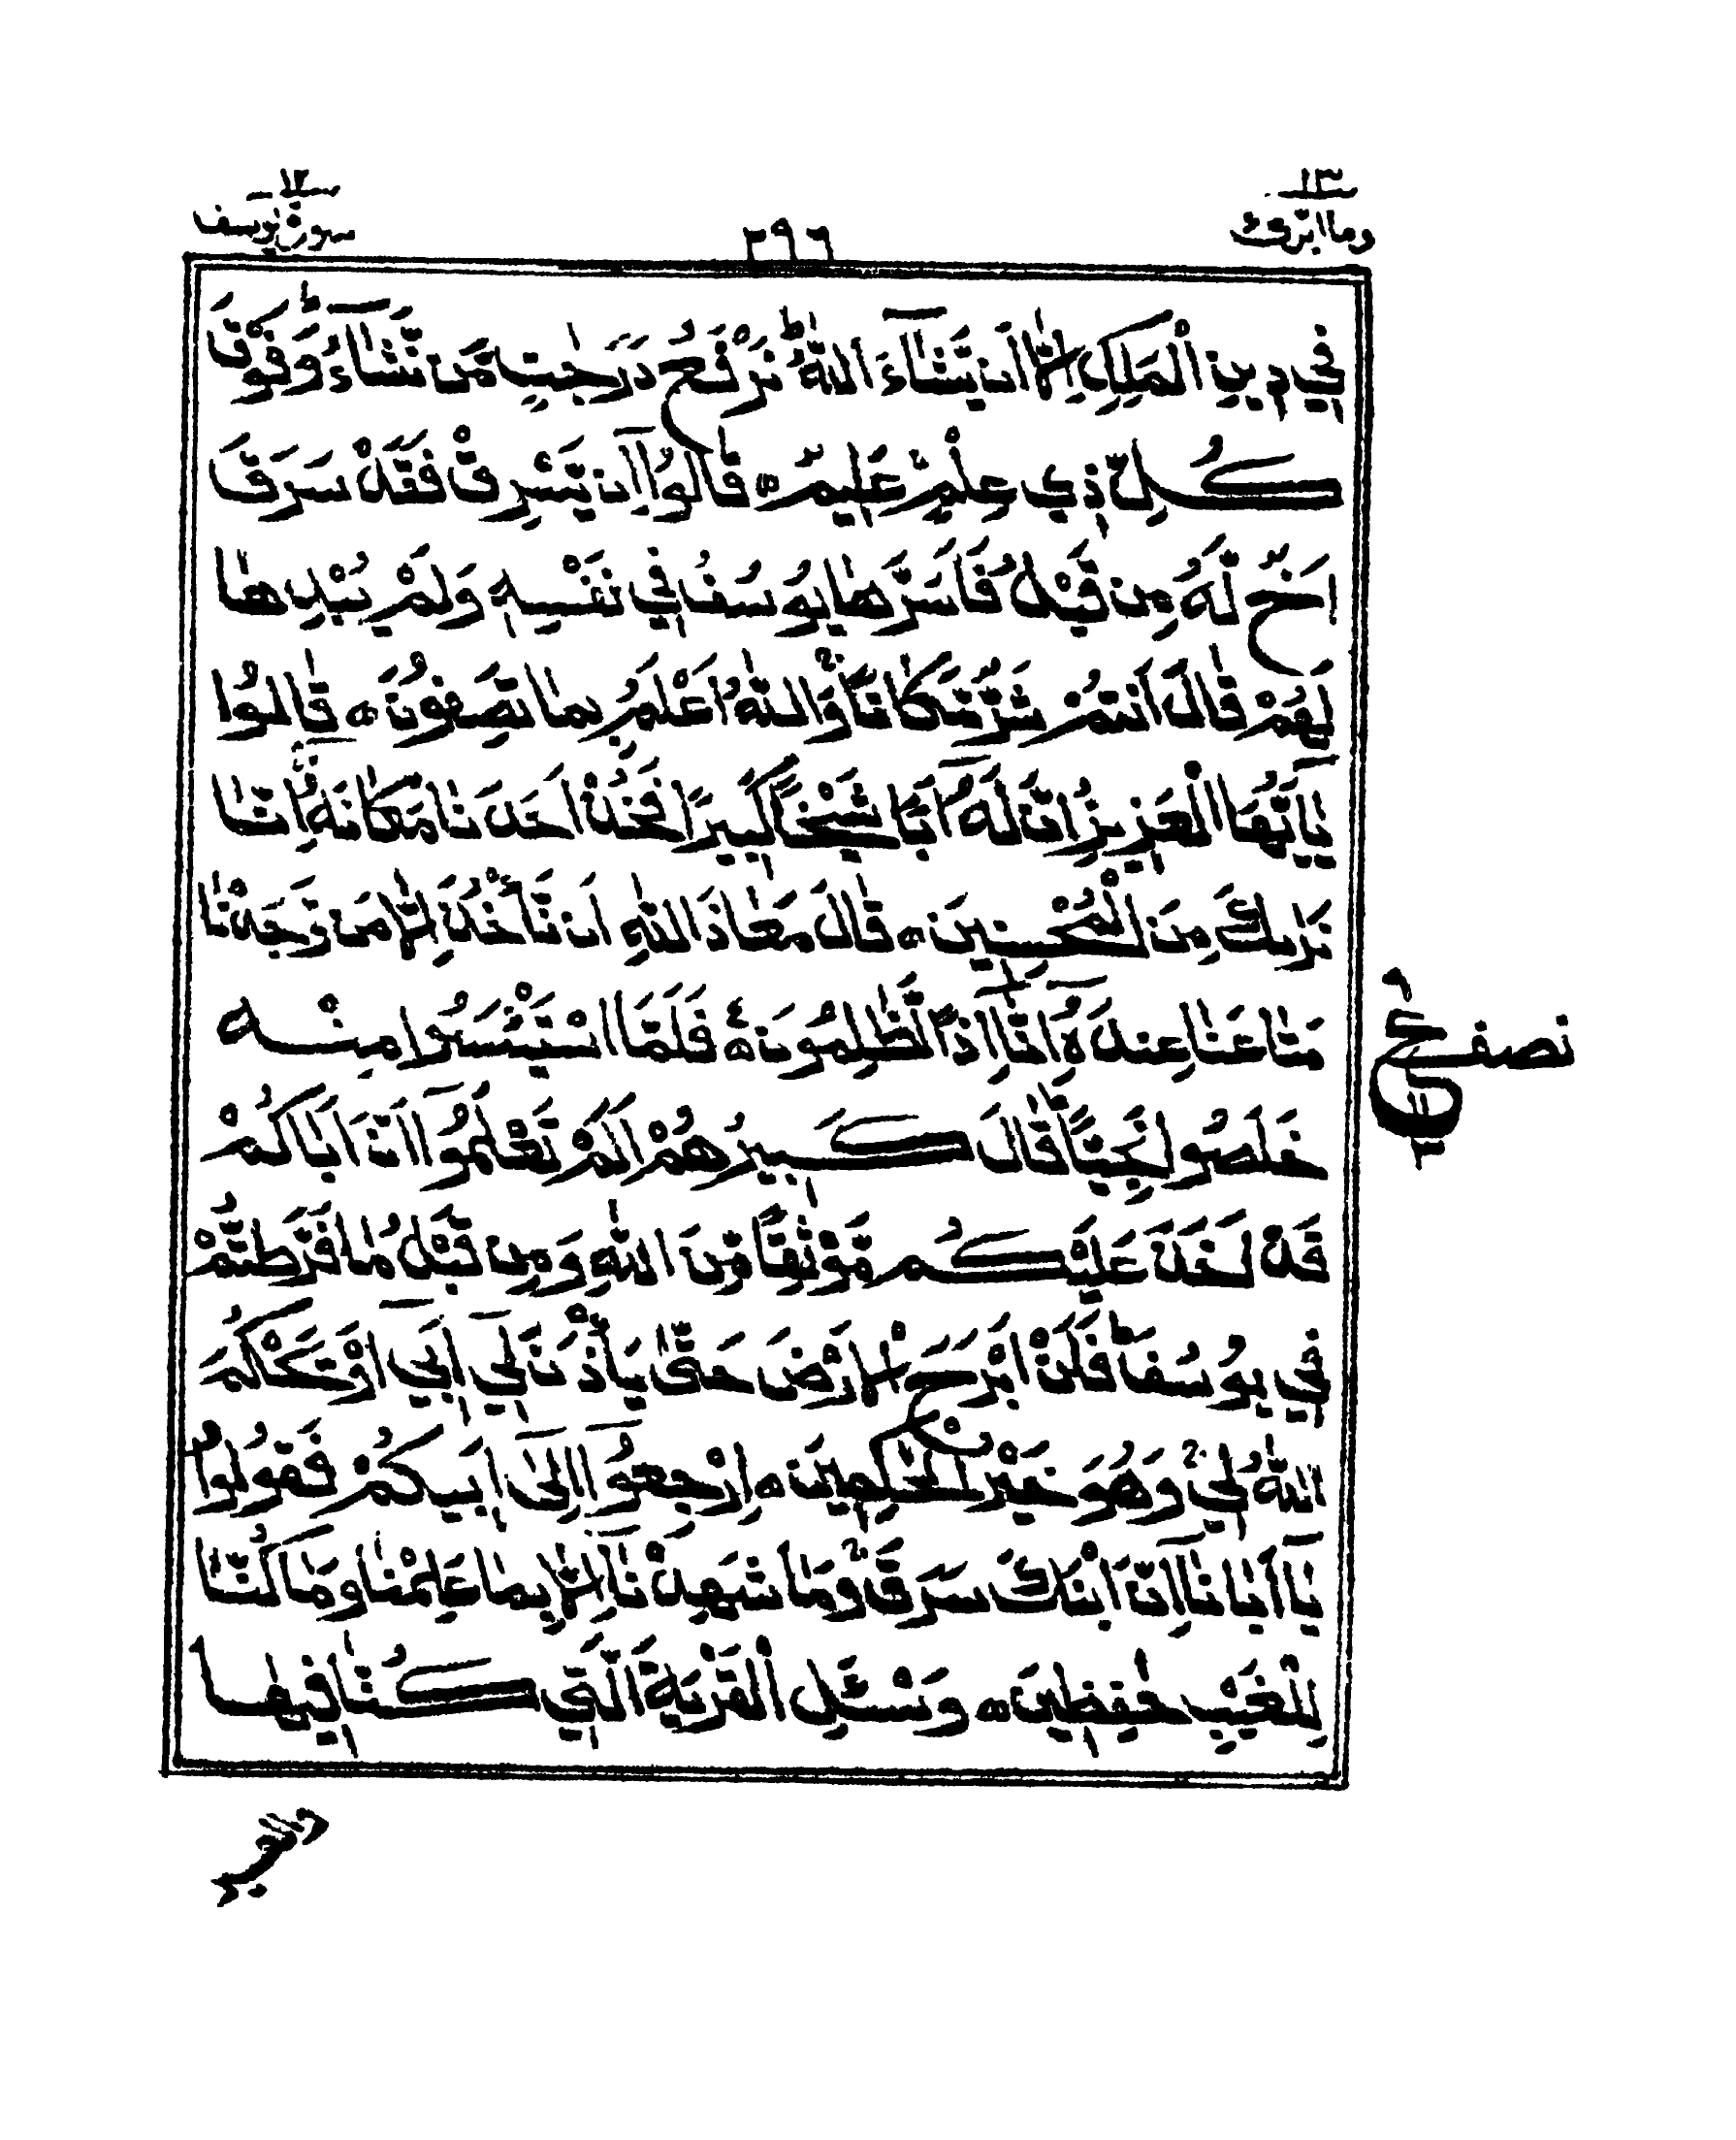 وما ابرئ ١٣
٣٩٦
سورة يوسف ١٢
فِي دِينِ الْمَلِكِ اِلَّا اَن يَّشَآءَ اللّٰهُ ؕ نَرْفَعُ دَرَجٰتٍ مَّن نَّشَآءُ ؕ وَفَوْقَ
كُلِّ ذِي عِلْمٍ عَلِيمٌ ۝ قَالُوْٓا اِن يَّسْرِقْ فَقَدْ سَرَقَ
اَخٌ لَّهٗ مِن قَبْلُ ۚ فَاَسَرَّهَا يُوسُفُ فِي نَفْسِهٖ وَلَمْ يُبْدِهَا
لَهُمْ ۚ قَالَ اَنتُمْ شَرٌّ مَّكَانًا ۚ وَاللّٰهُ اَعْلَمُ بِمَا تَصِفُونَ ۝ قَالُوا
يٰٓاَيُّهَا الْعَزِيزُ اِنَّ لَهٗٓ اَبًا شَيْخًا كَبِيرًا فَخُذْ اَحَدَنَا مَكَانَهٗ ۚ اِنَّا
نَرٰىكَ مِنَ الْمُحْسِنِينَ ۝ قَالَ مَعَاذَ اللّٰهِ اَن نَّأْخُذَ اِلَّا مَن وَّجَدْنَا
مَتَاعَنَا عِندَهٗٓ اِنَّآ اِذًا لَّظٰلِمُونَ ۝ فَلَمَّا اسْتَيْـَٔسُوا مِنْهُ
خَلَصُوا نَجِيًّا ؕ قَالَ كَبِيرُهُمْ اَلَمْ تَعْلَمُوْٓا اَنَّ اَبَاكُمْ
قَدْ اَخَذَ عَلَيْكُم مَّوْثِقًا مِّنَ اللّٰهِ وَمِن قَبْلُ مَا فَرَّطتُّمْ
فِي يُوسُفَ ؕ فَلَنْ اَبْرَحَ الْاَرْضَ حَتّٰى يَأْذَنَ لِيٓ اَبِيٓ اَوْ يَحْكُمَ
اللّٰهُ لِي ۚ وَهُوَ خَيْرُ الْحٰكِمِينَ ۝ اِرْجِعُوْٓا اِلٰٓى اَبِيكُمْ فَقُولُوا
يٰٓاَبَانَآ اِنَّ ابْنَكَ سَرَقَ ۚ وَمَا شَهِدْنَآ اِلَّا بِمَا عَلِمْنَا وَمَا كُنَّا
لِلْغَيْبِ حٰفِظِينَ ۝ وَسْـَٔلِ الْقَرْيَةَ الَّتِي كُنَّا فِيهَا
نصف
ع
٩
٣
والعير